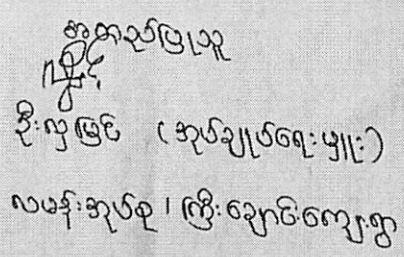 အတည်ပြုသူ
ဦးလှမြင့် (အုပ်ချုပ်ရေးမှူး)
လမန်းအုပ်စု၊ ကြိုးချောင်းကျေးရွာ